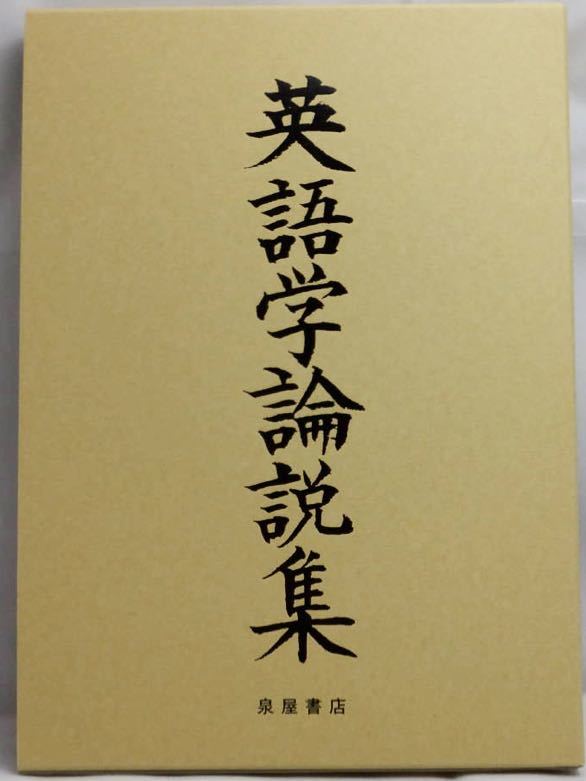 英語学論説集
泉屋書店